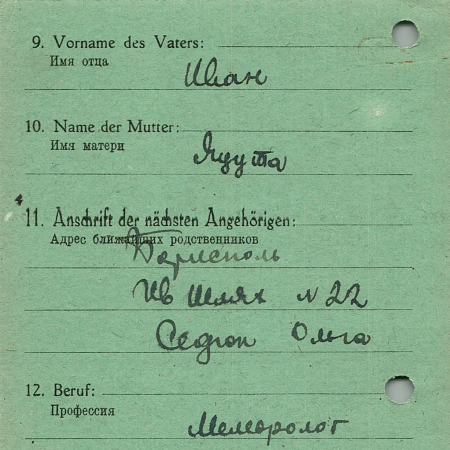 9. Vorname des Vaters:
Имя отца
Иван
10. Name der Mutter:
Имя матери
11. Anschrift der nächsten Angehörigen:
Адрес ближайших родственников
Борисполь
Ив Шлях N 22
Ольга
12. Beruf:
Профессия